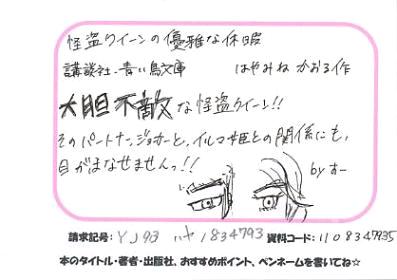 怪盗クイーンの優雅な休暇
講談社-青い鳥文庫 はやみね かおる作
大胆不敵な怪盗クイーン!!
そのパートナー、ジョーカーと、イルマ姫との関係にも、
目がはなせませんっ!!
by すー
請求記号: YJ913 ハヤ 1834793 資料コード: 1108347935
本のタイトル・著者・出版社、おすすめポイント、ペンネームを書いてね☆